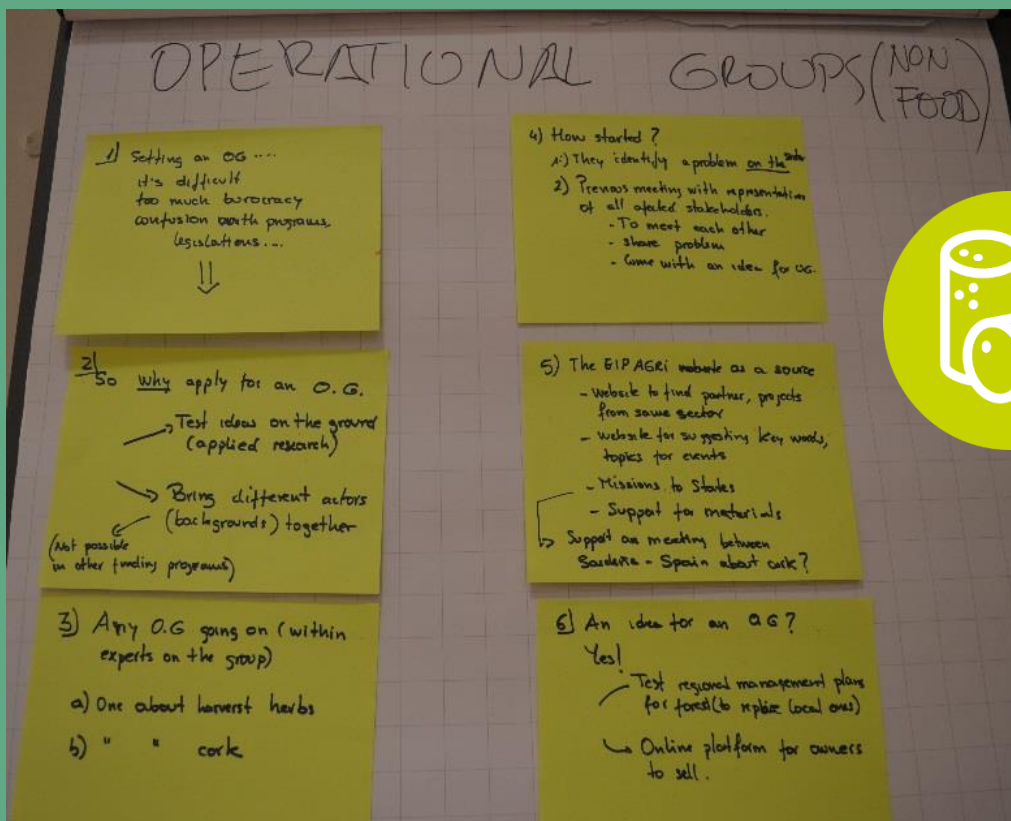 OPERATIONAL GROUPS (NON
FOOD)
1) Setting an OG ....
it's difficult
too much burocracy
confusion with programs,
legislations ....
2) So Why apply for an O.G.
Test ideas on the ground
(applied research)
Bring different actors
(backgrounds) together
(Not possible
in other funding programs)
3) Any O.G going on (within
experts on the group)
a) One about harvest herbs
b) " " cork
4) How started?
1:) They identify a problem on the
2) Previous meeting with representatives
of all afected stakeholders.
- To meet each other
- share problem
- Come with an idea for OG.
5) The EIP AGRi website as a source
- Website to find partner, projects
from same sector
- website for suggesting key words,
topics for events
- Missions to States
- Support for materials
Support an meeting between
Sardinia - Spain about cork?
6) An idea for an OG?
Yes!
Test regional management plans
for forest (to replace local ones)
Online platform for owners
to sell.